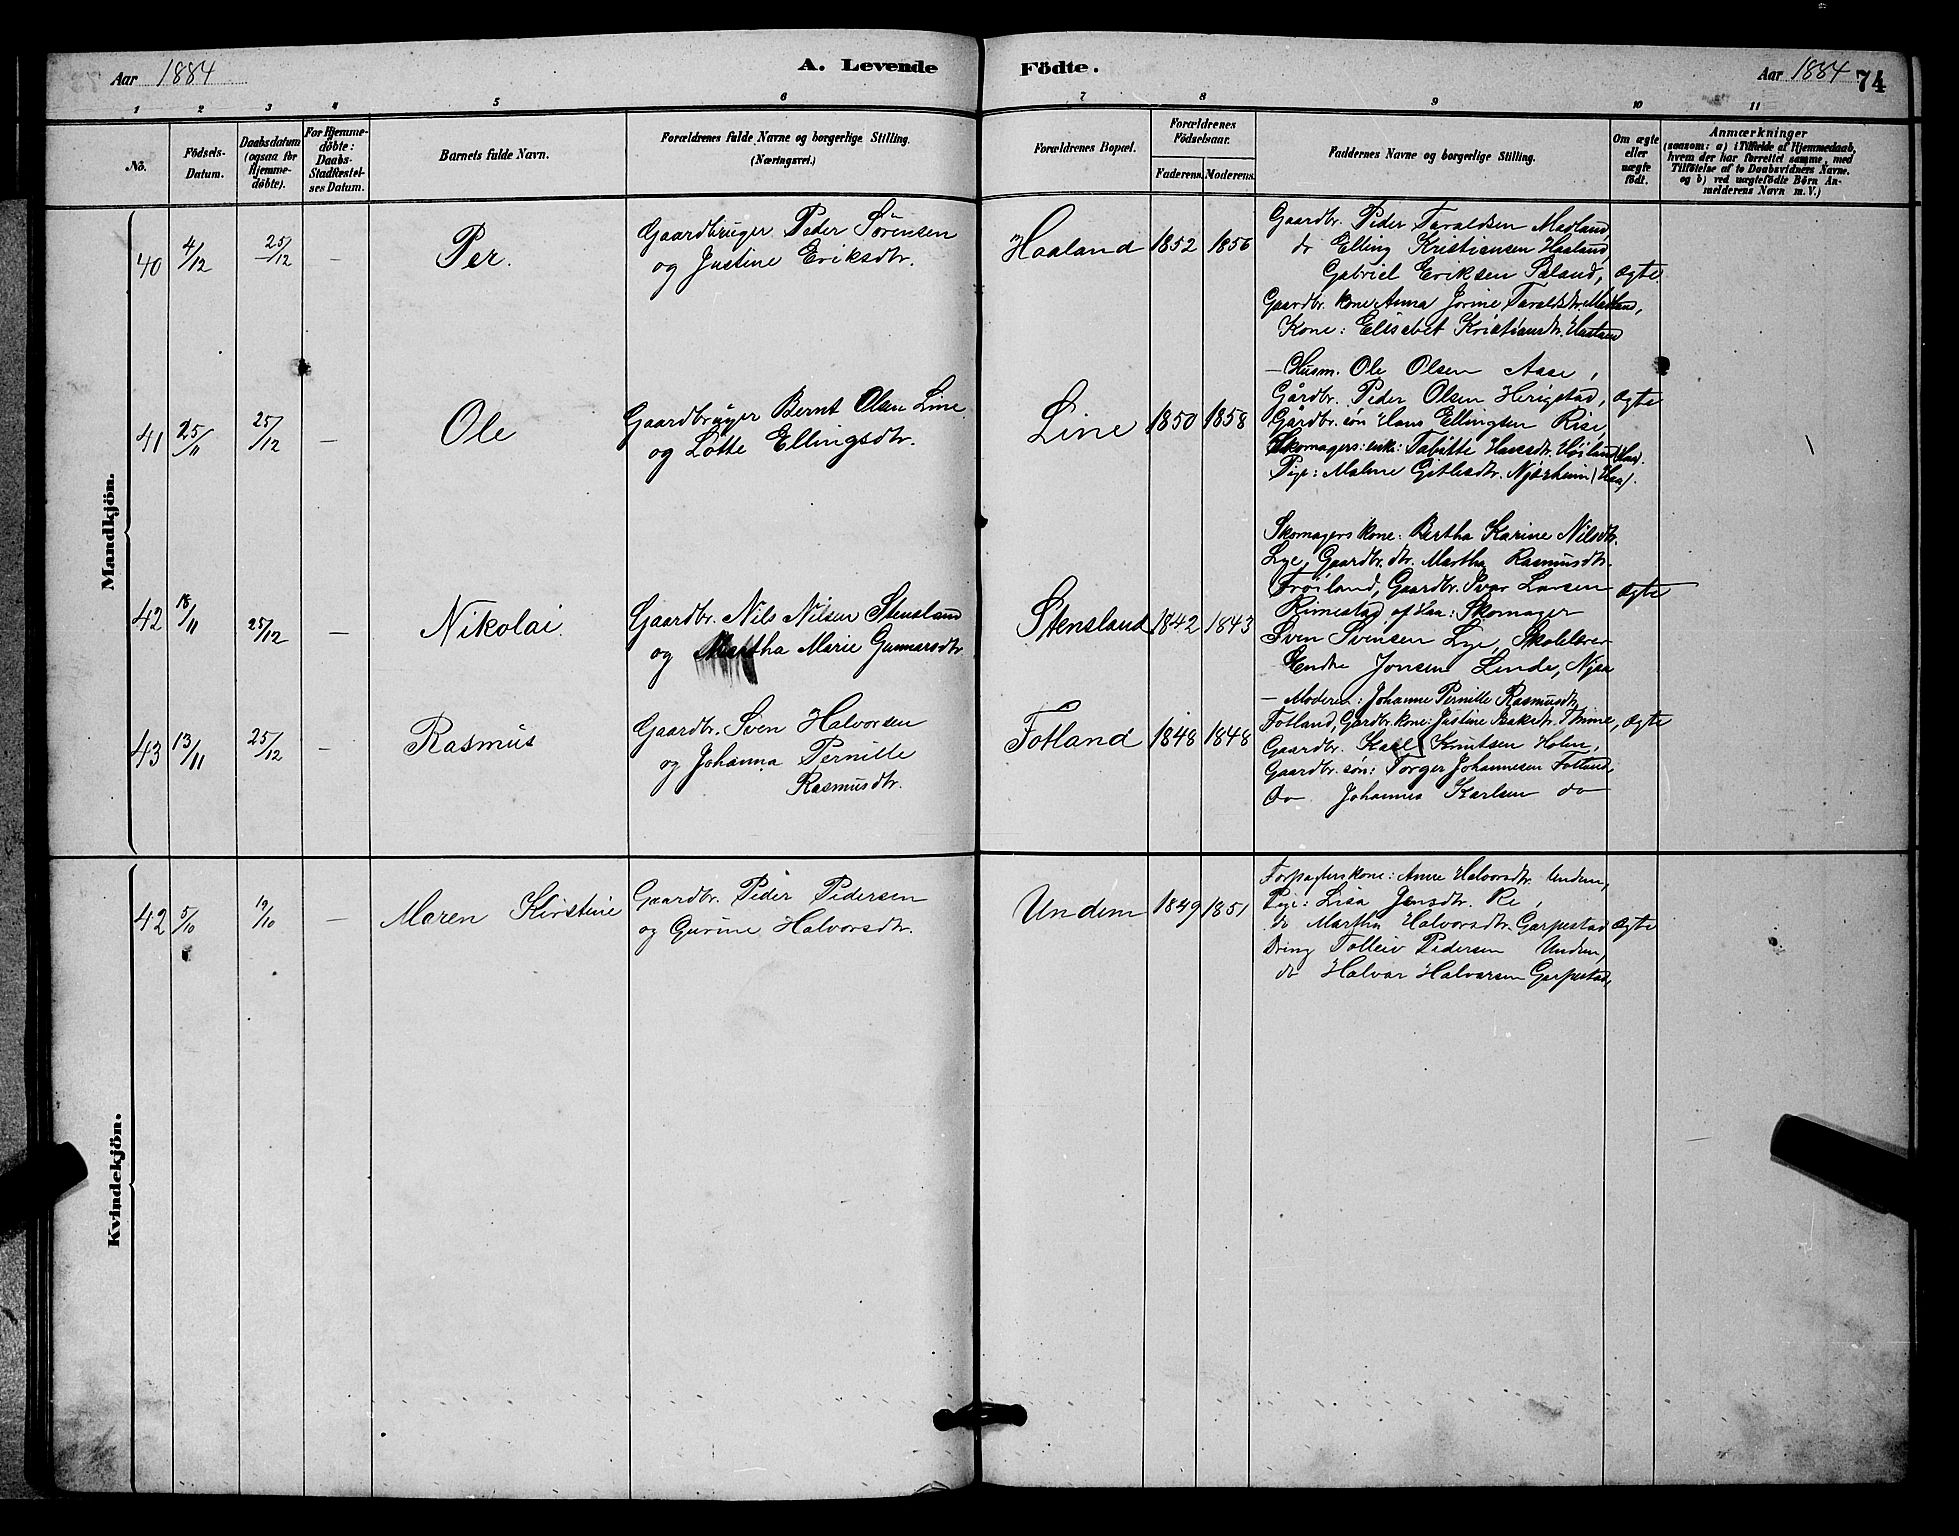 Aar 1884
A. Levende Födte.
Aar 1884
74
1 2 3 4 5 6 7 8 9 10 11
No.
Födsels-Datum.
Daabsdatum (ogsaa for Hjemme-døbte).
For Hjemme-döbte: Daabs-Stadfæstel-ses Datum.
Barnets fulde Navn.
Forældrenes fulde Navne og borgerlige Stilling. (Næringsvei.)
Forældrenes Bopæl.
Forældrenes Födselsaar.
Faderens. Moderens.
Faddernes Navne og borgerlige Stilling.
Om ægte eller uægte födt.
Anmærkninger
(saasom: a) i Tilfælde af Hjemmedaab,
hvem der har forrettet samme, med
Tilföielse af to Daabsvidners Navne.
og b) ved uægtefödte Börn An-
melderens Navn m.V.)
Mandkjön.
40 4/12 25/12 — Per.
Gaardbruger Peder Sørensen
og Justine Eriksdtr.
Haaland 1852 1856
Gaardbr. Peder Taraldsen Madland
do Elling Kristiansen Haaland,
Gabriel Eriksen Sæland,
Gaardbr. kone Anna Jorine Taraldsdtr. Madland,
Kone: Elisabet Kristiansdtr. Haaland
ægte
41 25/11 25/12 — Ole
Gaardbruger Bernt Olsen Line
og Lotte Ellingsdtr.
Line 1850 1858
— Husm. Ole Olsen Aase,
Gårdbr. Peder Olsen Herigstad,
Gårdbr. søn Hans Ellingsen Rise,
Skomagers: enke: Tabitte Hansdtr. Høiland (Haa).
Pige: Malene Gitlesdtr. Njærheim (Haa).
ægte
42 18/11 25/12 — Nikolai.
Gaardbr. Nils Nilsen Stensland
og Martha Marie Gunnarsdtr
Stensland 1842 1843
Skomagers kone: Bertha Karine Nilsdtr.
Lye, Gaardbr. dtr. Martha Rasmusdtr.
Frøiland, Gaardbr. Ivar Larsen
Rimestad af Haa: Skomager
Sven Svensen Lye, Skolelærer
Endre Jonsen Linde, Njaa
ægte
43 13/11 25/12 — Rasmus
Gaardbr. Sven Halvorsen
og Johanna Pernille
Rasmusdtr.
Fotland 1848 1848
— Moderen: Johanne Pernille Rasmusdtr
Fotland, Gårdbr. kone: Justine Bakedtr. Thime,
Gaardbr. Karl Knutsen Holen,
Gaardbr. søn: Torger Johannesen Fotland,
do Johannes Karlsen do
ægte
Kvindekjön.
42 5/10 19/10 — Maren Kirstine
Gaardbr. Peder Pedersen
og Gurine Halvorsdtr.
Undem 1849 1851
Forpagterskone: Anne Halvorsdtr. Undem,
Pige: Lisa Jensdtr. Re,
do Martha Halvorsdtr. Garpestad
Dreng Tolleiv Pedersen Undem,
do Halvar Halvorsen Garpestad,
ægte